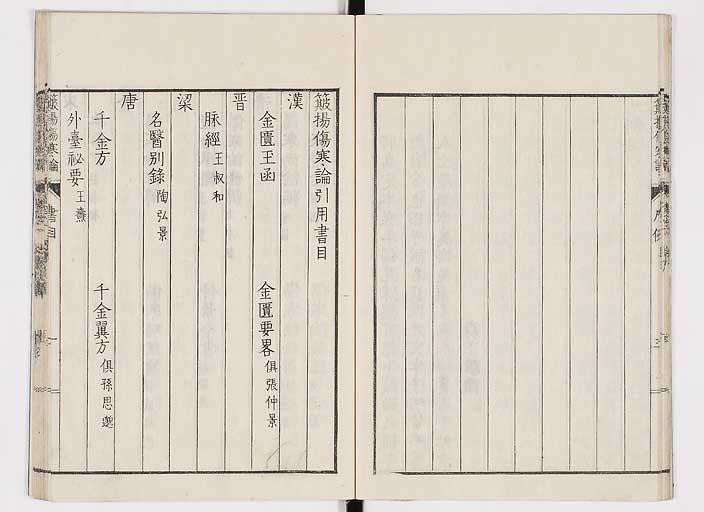 簸揚傷寒論引用書目
漢
金匱玉函 金匱要畧 俱張仲景
晋
脉經 王叔和
梁
名醫别錄 陶弘景
唐
千金方 千金翼方 俱孫思邈
外臺祕要 王燾
簸揚傷寒論 書目 一